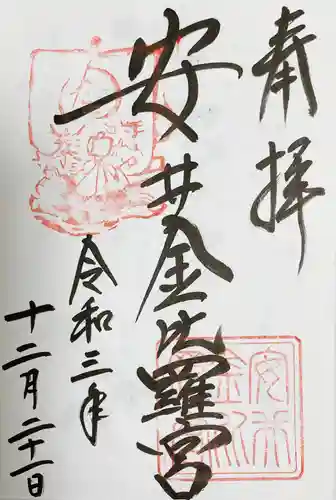 奉拝
安井金比羅宮
令和三年
十二月二十一日